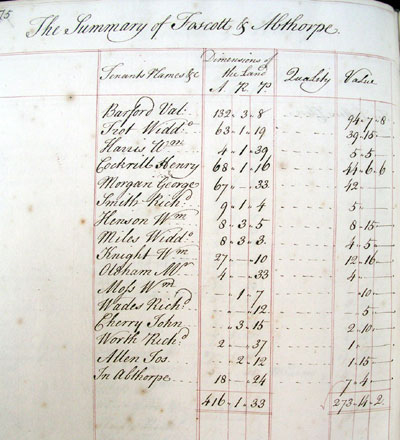 75
The Summary of Foscott & Abthorpe.
Dimensions of
Tenants Names &c the Land Quality Value
A. R. P.
Barford Val: 132 - 3 - 8 94 - 7 - 8
Trot Widdo. 63 - 1 - 19 39 - 15
Harris Wm 4 - 1 - 39 5 - 5
Cockrill Henry 68 - 1 - 16 44 - 6 - 6
Morgan George 67 - - 33 42
Smith Richd. 9 - 1 - 4 5
Henson Wm 8 - 3 - 5 8 - 15
Miles Widdo. 8 - 3 - 3 4 - 5
Knight Wm 27 - - 10 12 - 16
Oldham Mr. 4 - - 33 4
Moss Wm - 1 - 7 - 10
Wades Richd. - - 12 - 5
Cherry John - 3 - 15 2 - 10
Worth Richd. 2 - - 37 1
Allen Jos - 2 - 12 1 - 15
In Abthorpe 18 - - 24 7 - 4
416 - 1 - 33 273 - 14 - 2